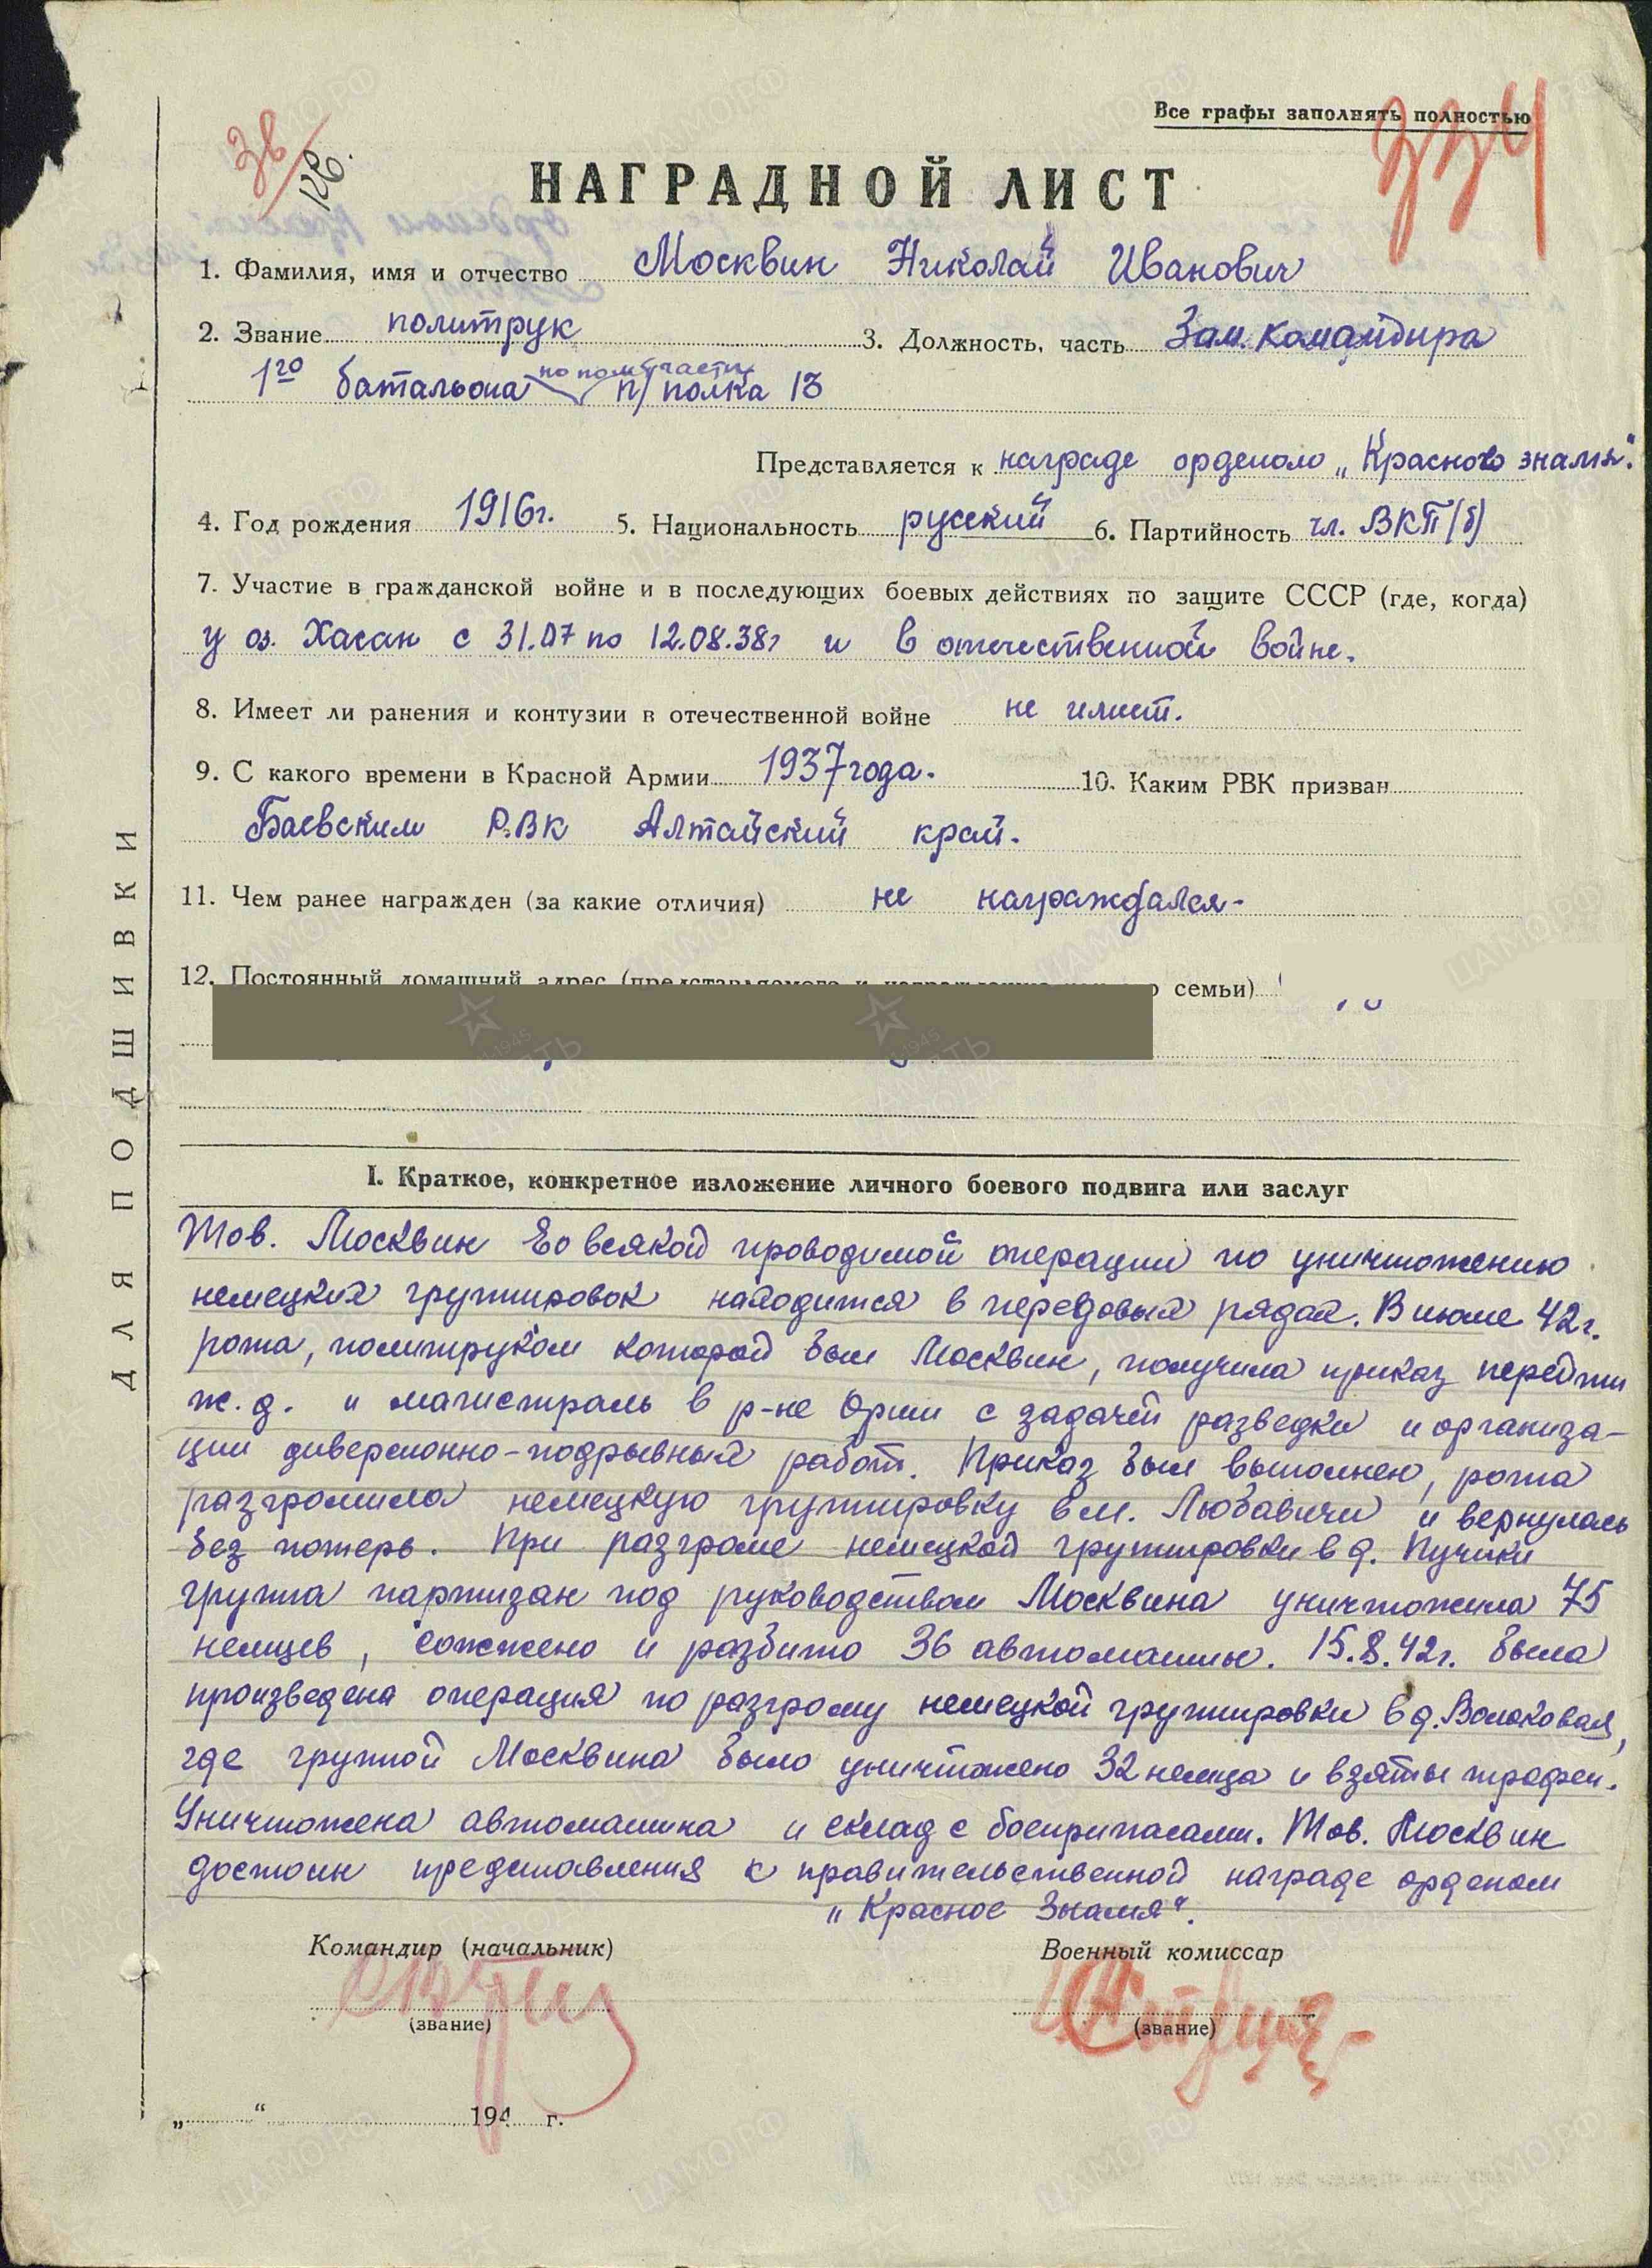 Все графы заполнять полностью
334
НАГРАДНОЙ ЛИСТ
1. Фамилия, имя и отчество Москвин Николай Иванович
2. Звание политрук 3. Должность, часть Зам. командира
1го батальона по полит части п/полка 13
Представляется к награде орденом „Красного знамя“.
4. Год рождения 1916г. 5. Национальность русский 6. Партийность чл. ВКП/б/
7. Участие в гражданской войне и в последующих боевых действиях по защите СССР (где, когда)
у оз. Хасан с 31.07 по 12.08.38г и в отечественной войне.
8. Имеет ли ранения и контузии в отечественной войне не имеет.
9. С какого времени в Красной Армии 1937 года. 10. Каким РВК призван
Баевским РВК Алтайский край.
11. Чем ранее награжден (за какие отличия) не награждался-
12. Постоянный домашний адрес (представляемого к семьи)
ДЛЯ ПОДШИВКИ
I. Краткое, конкретное изложение личного боевого подвига или заслуг
Тов. Москвин во всякой проводимой операции по уничтожению
немецких группировок находится в передовых рядах. В июле 42г.
рота, политруком которой был Москвин, получила приказ перейти
ж.д. и магистраль в р-не Орши с задачей разведки и организа-
ции диверсионно-подрывных работ. Приказ был выполнен, рота
разгромила немецкую группировку в м. Любавичи и вернулась
без потерь. При разгроме немецкой группировки в д. Пучики
группа партизан под руководством Москвина уничтожила 75
немцев, сожжено и разбито 36 автомашин. 15.8.42г. была
произведена операция по разгрому немецкой группировки в д. Волоковая,
где группой Москвина было уничтожено 32 немца и взяты трофеи.
Уничтожена автомашина и склад с боеприпасами. Тов. Москвин
достоин представления к правительственной награде орденом
„Красное Знамя“.
Командир (начальник) Военный комиссар
(звание) (звание)
„ “ 194 г.